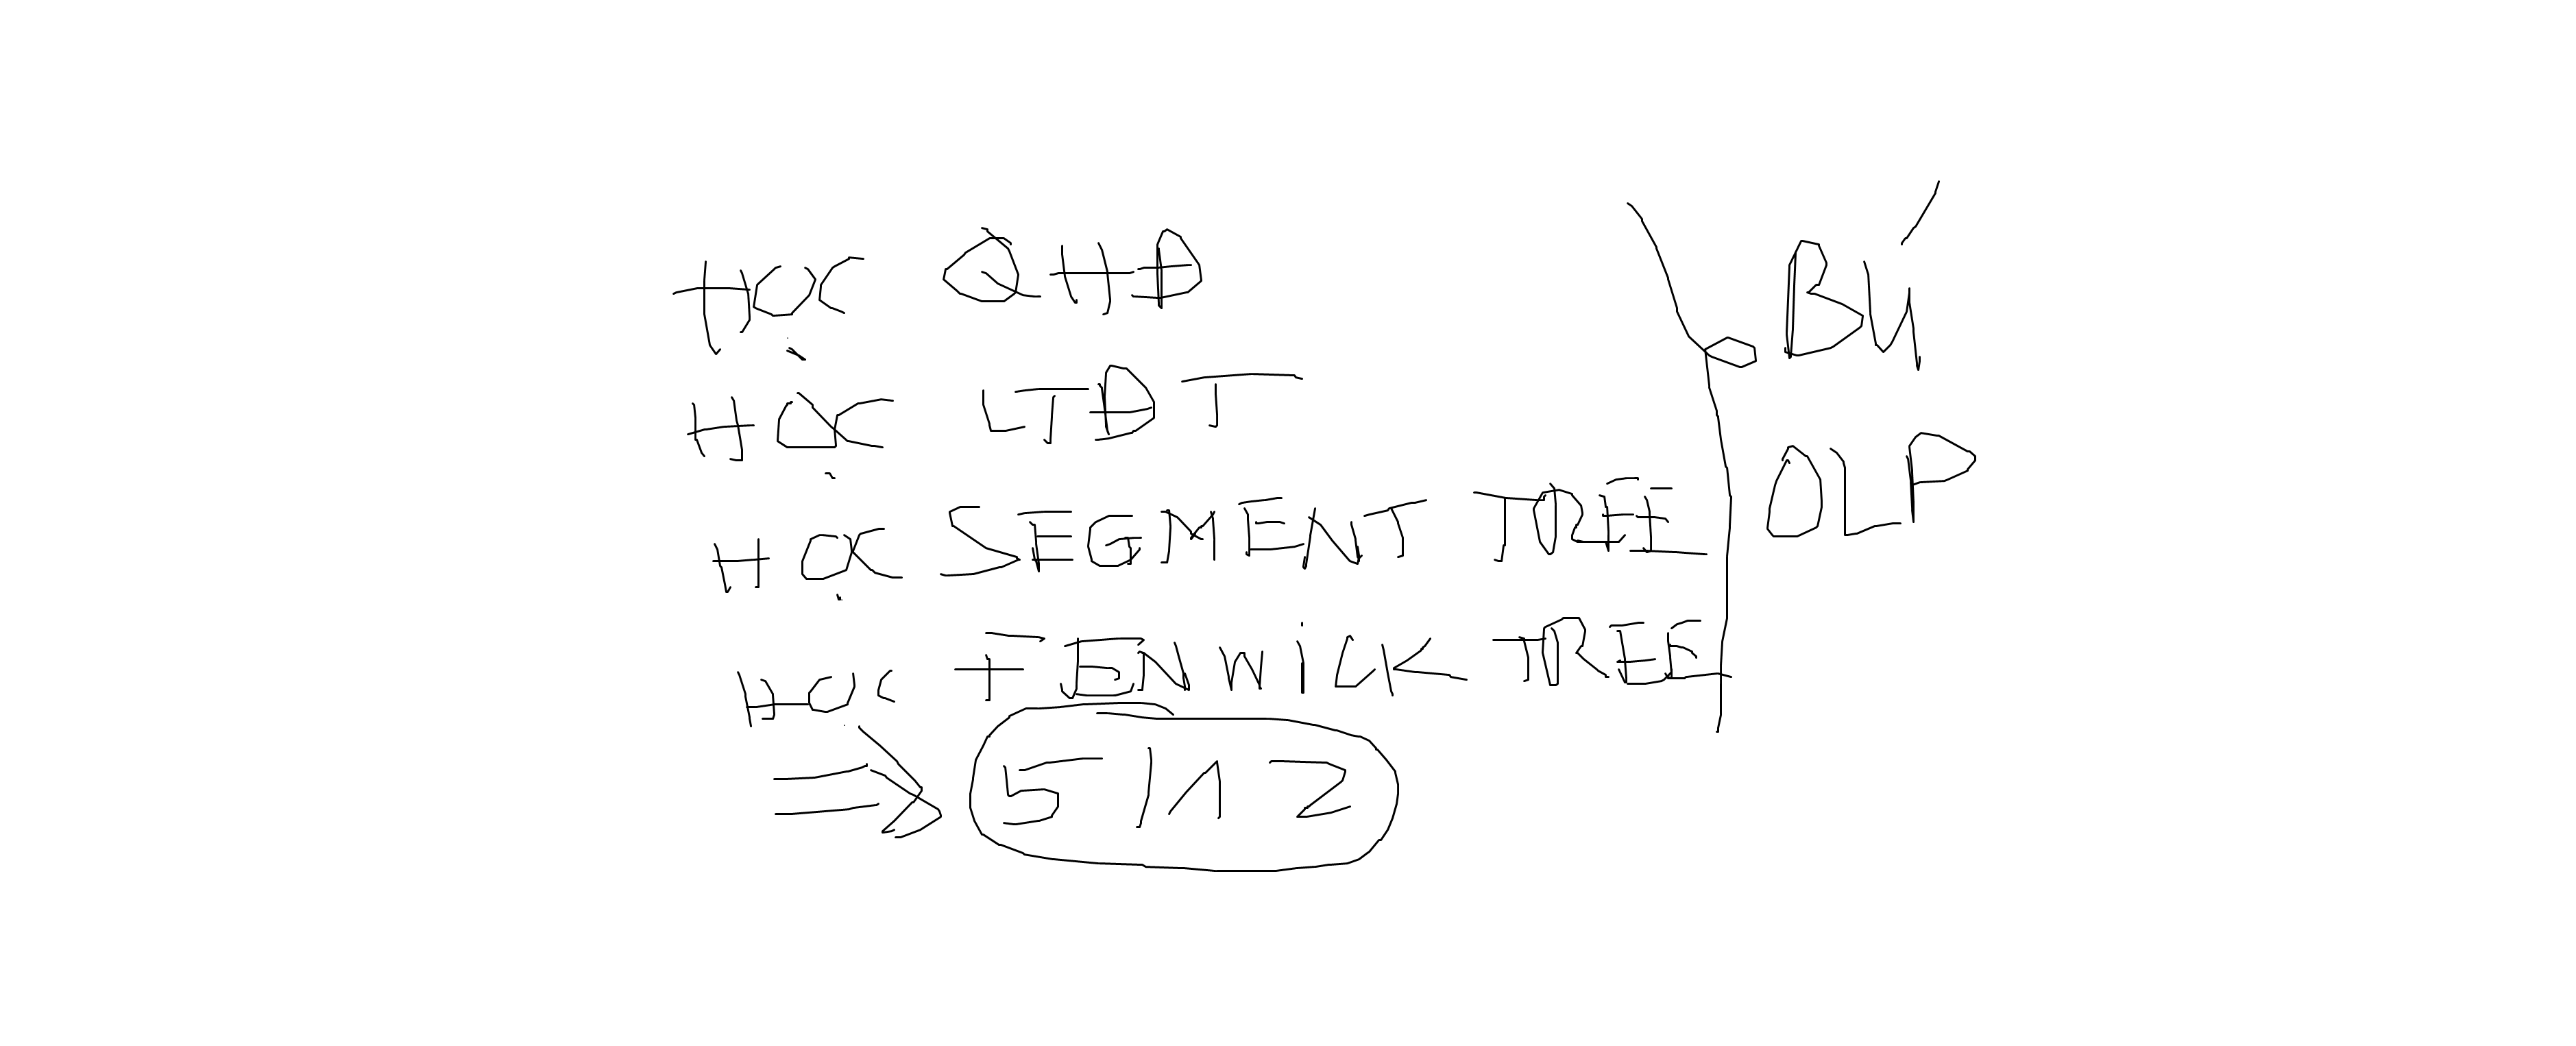 HỌC QHĐ
HỌC LTĐT
HỌC SEGMENT TREE
HỌC FENWICK TREE
⇒ 5/12
BÚ
OLP